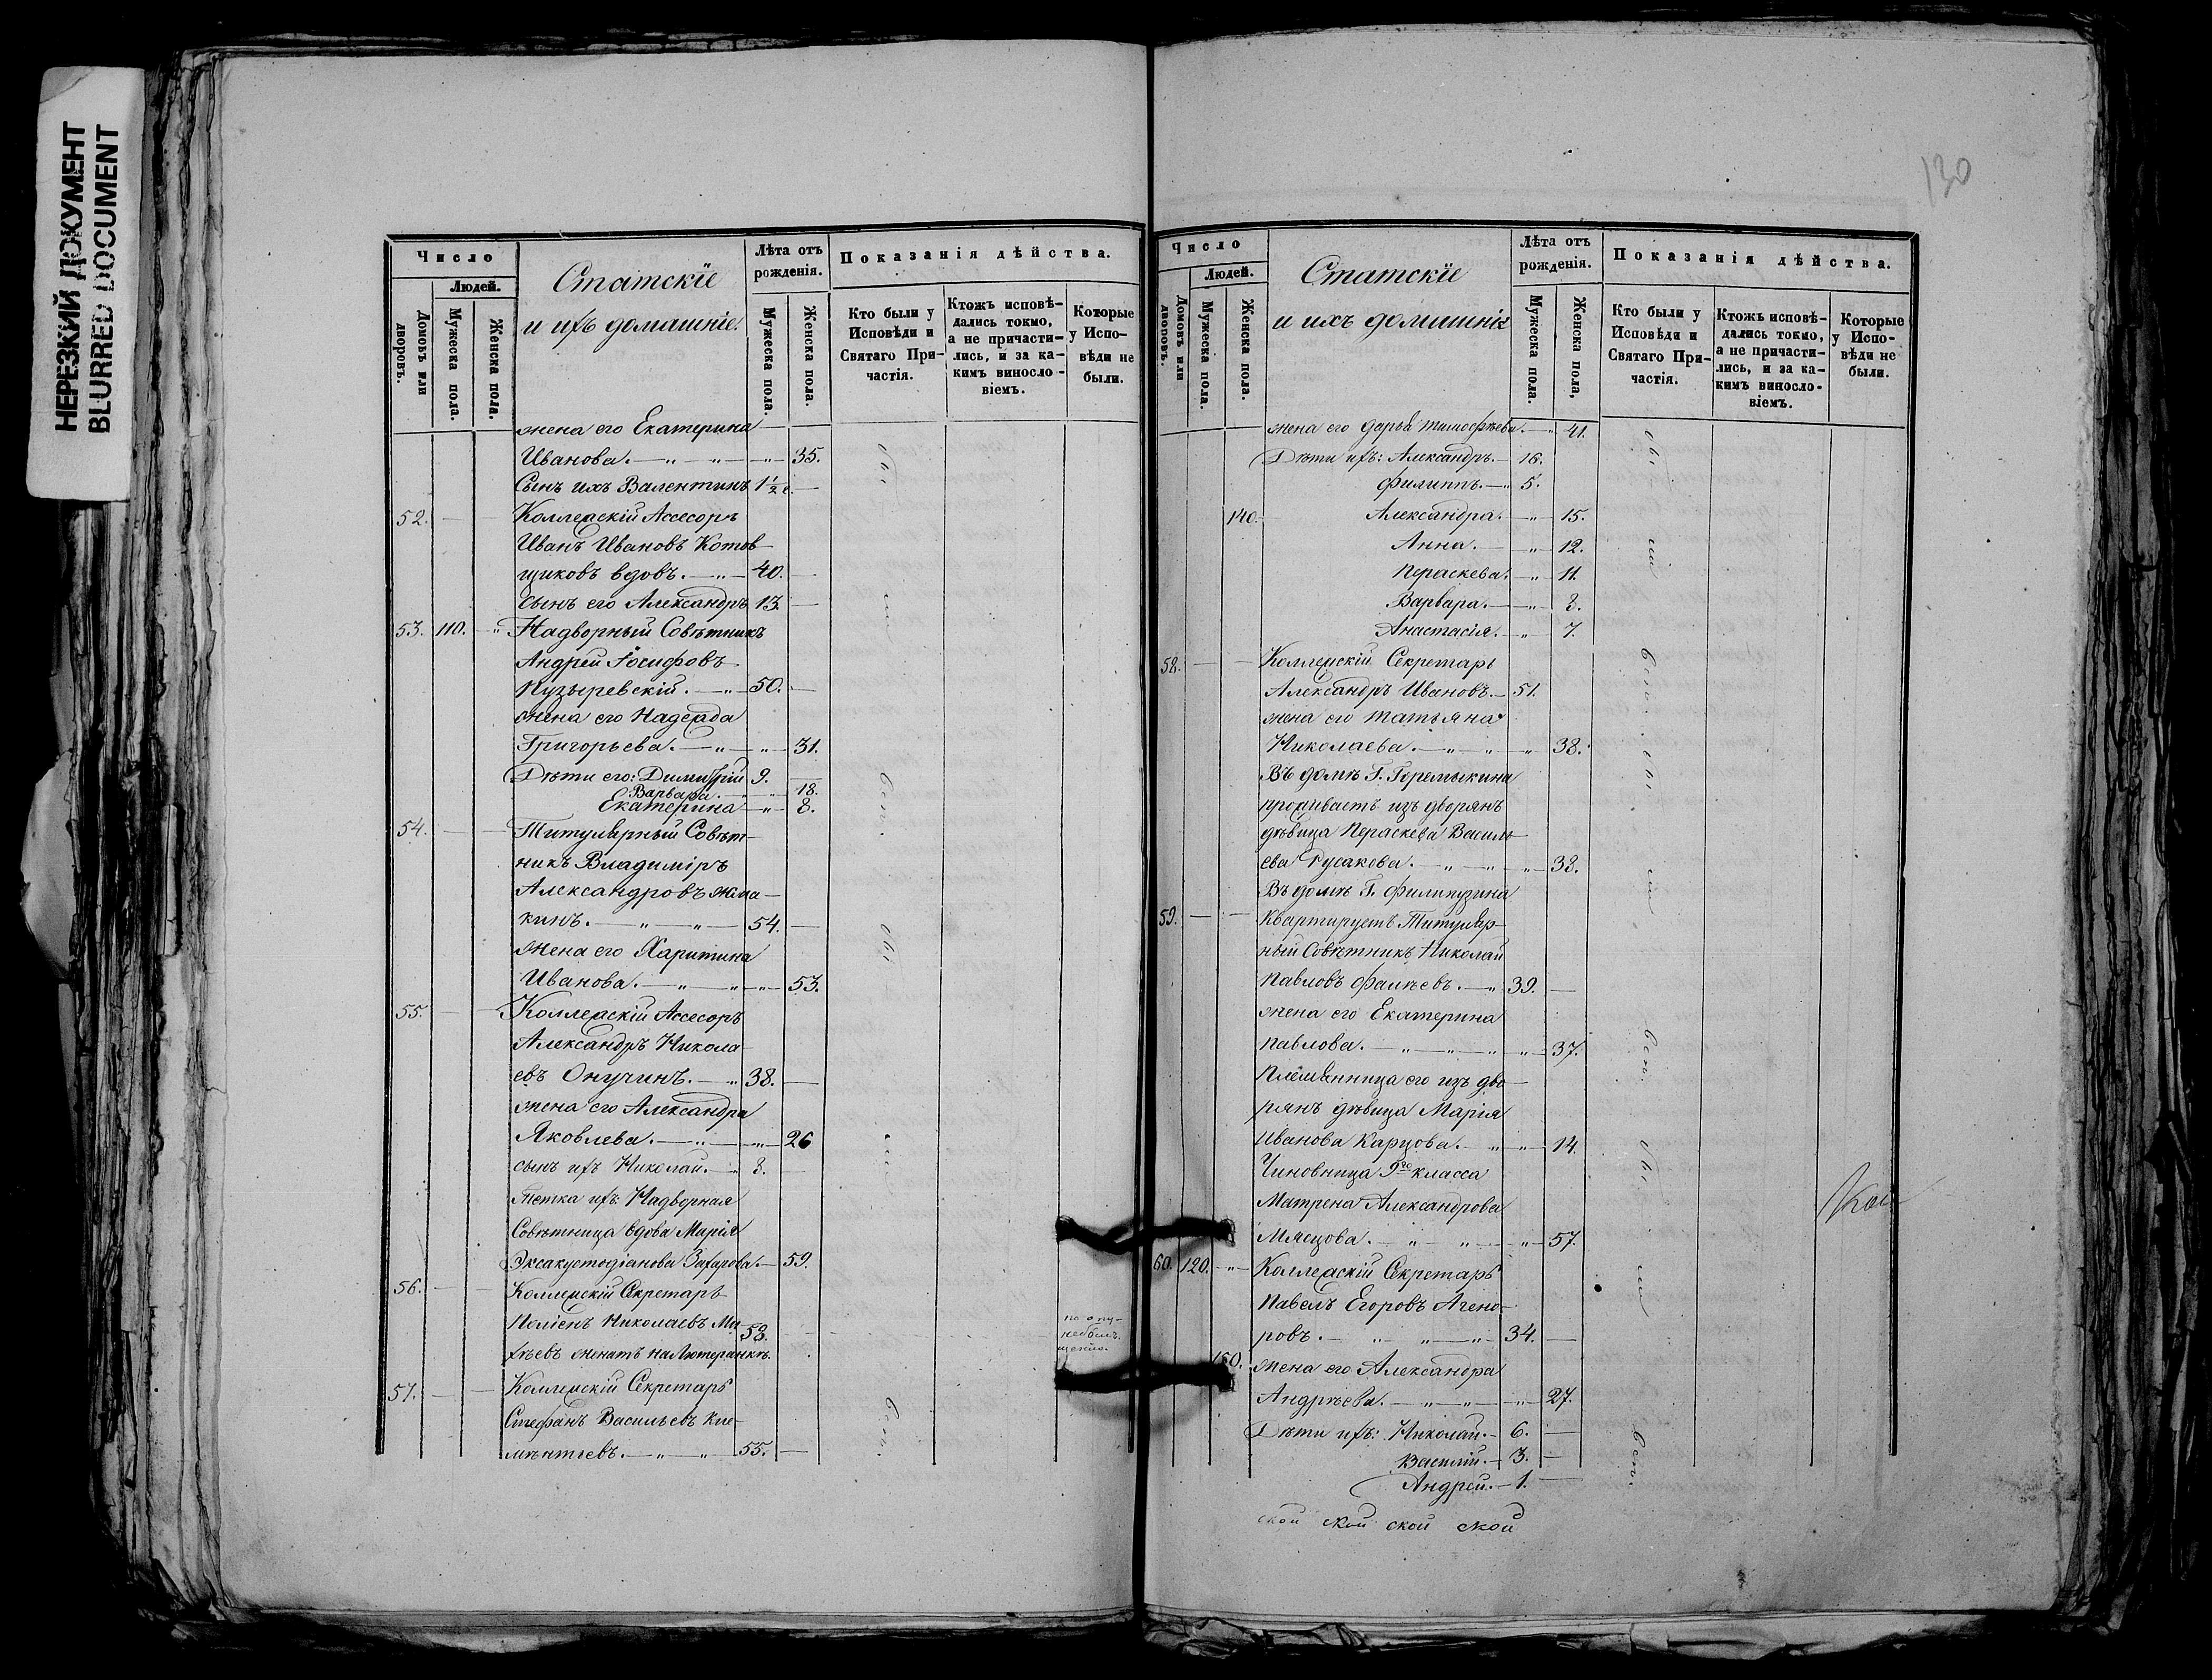 НЕРЕЗКИЙ ДОКУМЕНТ
BLURRED DOCUMENT
Число
Людей.
Домовъ или дворовъ.
Мужеска пола.
Женска пола.
Статскіе
и ихъ домашніе.
Лѣта отъ рожденія.
Мужеска пола.
Женска пола.
Показанія дѣйства.
Кто были у Исповѣди и Святаго Причастія.
Ктожъ исповѣдались токмо, а не причастились, и за какимъ винословіемъ.
Которые у Исповѣди не были.
жена его Екатерина
Иванова. 35.
Сынъ ихъ Валентинъ 1½
52. Коллежскій Ассесоръ
Иванъ Ивановъ Котов
щиковъ вдовъ. 40.
сынъ его Александръ 13.
53. 110. Надворный Совѣтникъ
Андрей Іосифовъ
Пузыревскій. 50.
жена его Надежда
Григорьева. 31.
Дѣти его: Димитрій 9.
Варвара. 18.
Екатерина 8.
54. Титулярный Совѣт
никъ Владиміръ
Александровъ Жма
кинъ. 54.
жена его Харитина
Иванова. 53.
55. Коллежскій Ассесоръ
Александръ Никола
евъ Онучинъ. 38.
жена его Александра
Яковлева. 26
сынъ ихъ Николай. 3.
Тетка ихъ Надворная
Совѣтница вдова Марія
Эксакустодіанова Захарова. 59.
56. Коллежскій Секретарь
Николаевъ Ми
хѣевъ женатъ на Лютеранкѣ. 53.
по опу-
небылъ.
щенію.
57. Коллежскій Секретарь
Стефанъ Васильевъ Кле
мѣнтьевъ. 55.
130
Число
Людей.
Домовъ или дворовъ.
Мужеска пола.
Женска пола.
Статскіе
и ихъ домашніе
Лѣта отъ рожденія.
Мужеска пола.
Женска пола,
Показанія дѣйства.
Кто были у Исповѣди и Святаго Причастія.
Ктожъ исповѣдались токмо, а не причастились, и за какимъ винословіемъ.
Которые у Исповѣди не были.
жена его Дарья Тимофѣева. 41.
Дѣти ихъ: Александръ. 16.
Филиппъ. 5.
140. Александра. 15.
Анна. 12.
Пераскева. 11.
Варвара. 8.
Анастасія. 7.
58. Коллежскій Секретарь
Александръ Ивановъ. 51.
жена его Татьяна
Николаева. 38.
Въ домѣ Г. Горемыкина
проживаетъ изъ дворянъ
дѣвица Пераскева Василь
ева Русакова. 38.
Въ домѣ Г. Филипузина
59. Квартируетъ Титуляр
ный Совѣтникъ Николай
Павловъ Фалѣевъ. 39.
жена его Екатерина
Павлова. 37.
Племянница его изъ дво
рянъ дѣвица Марія
Иванова Карцова. 14.
Чиновница 9го класса
Матрена Александрова
Мляцова. 57.
60. 120. Коллежскій Секретарь
Павелъ Егоровъ Агено
ровъ. 34.
150. жена его Александра
Андрѣева. 27.
Дѣти ихъ: Николай. 6.
Василій. 3.
Андрей. 1.
ской ской ской ской